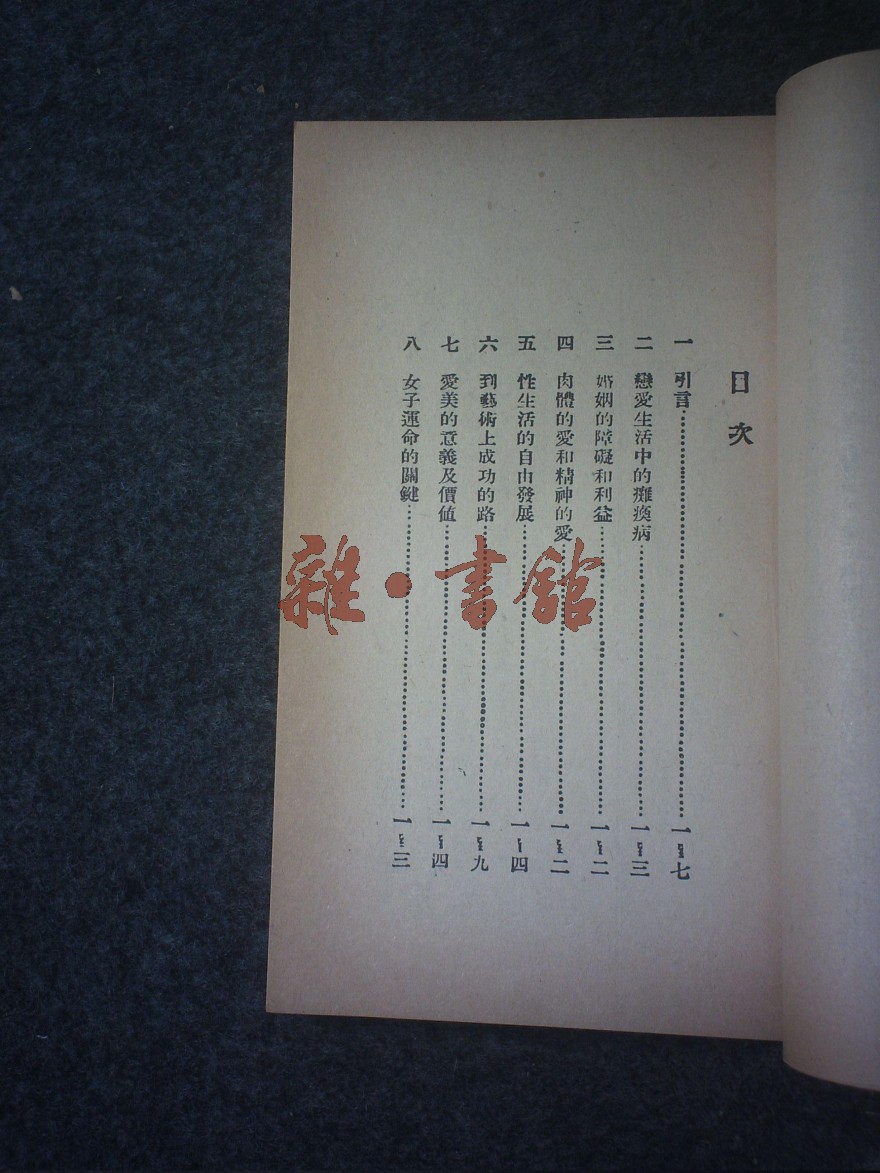 目次
一 引言……一—七
二 戀愛生活中的癱瘓病……一—三
三 婚姻的障礙和利益……一—二
四 肉體的愛和精神的愛……一—二
五 性生活的自由發展……一—四
六 到藝術上成功的路……一—九
七 愛美的意義及價值……一—四
八 女子運命的關鍵……一—三
雜·書館